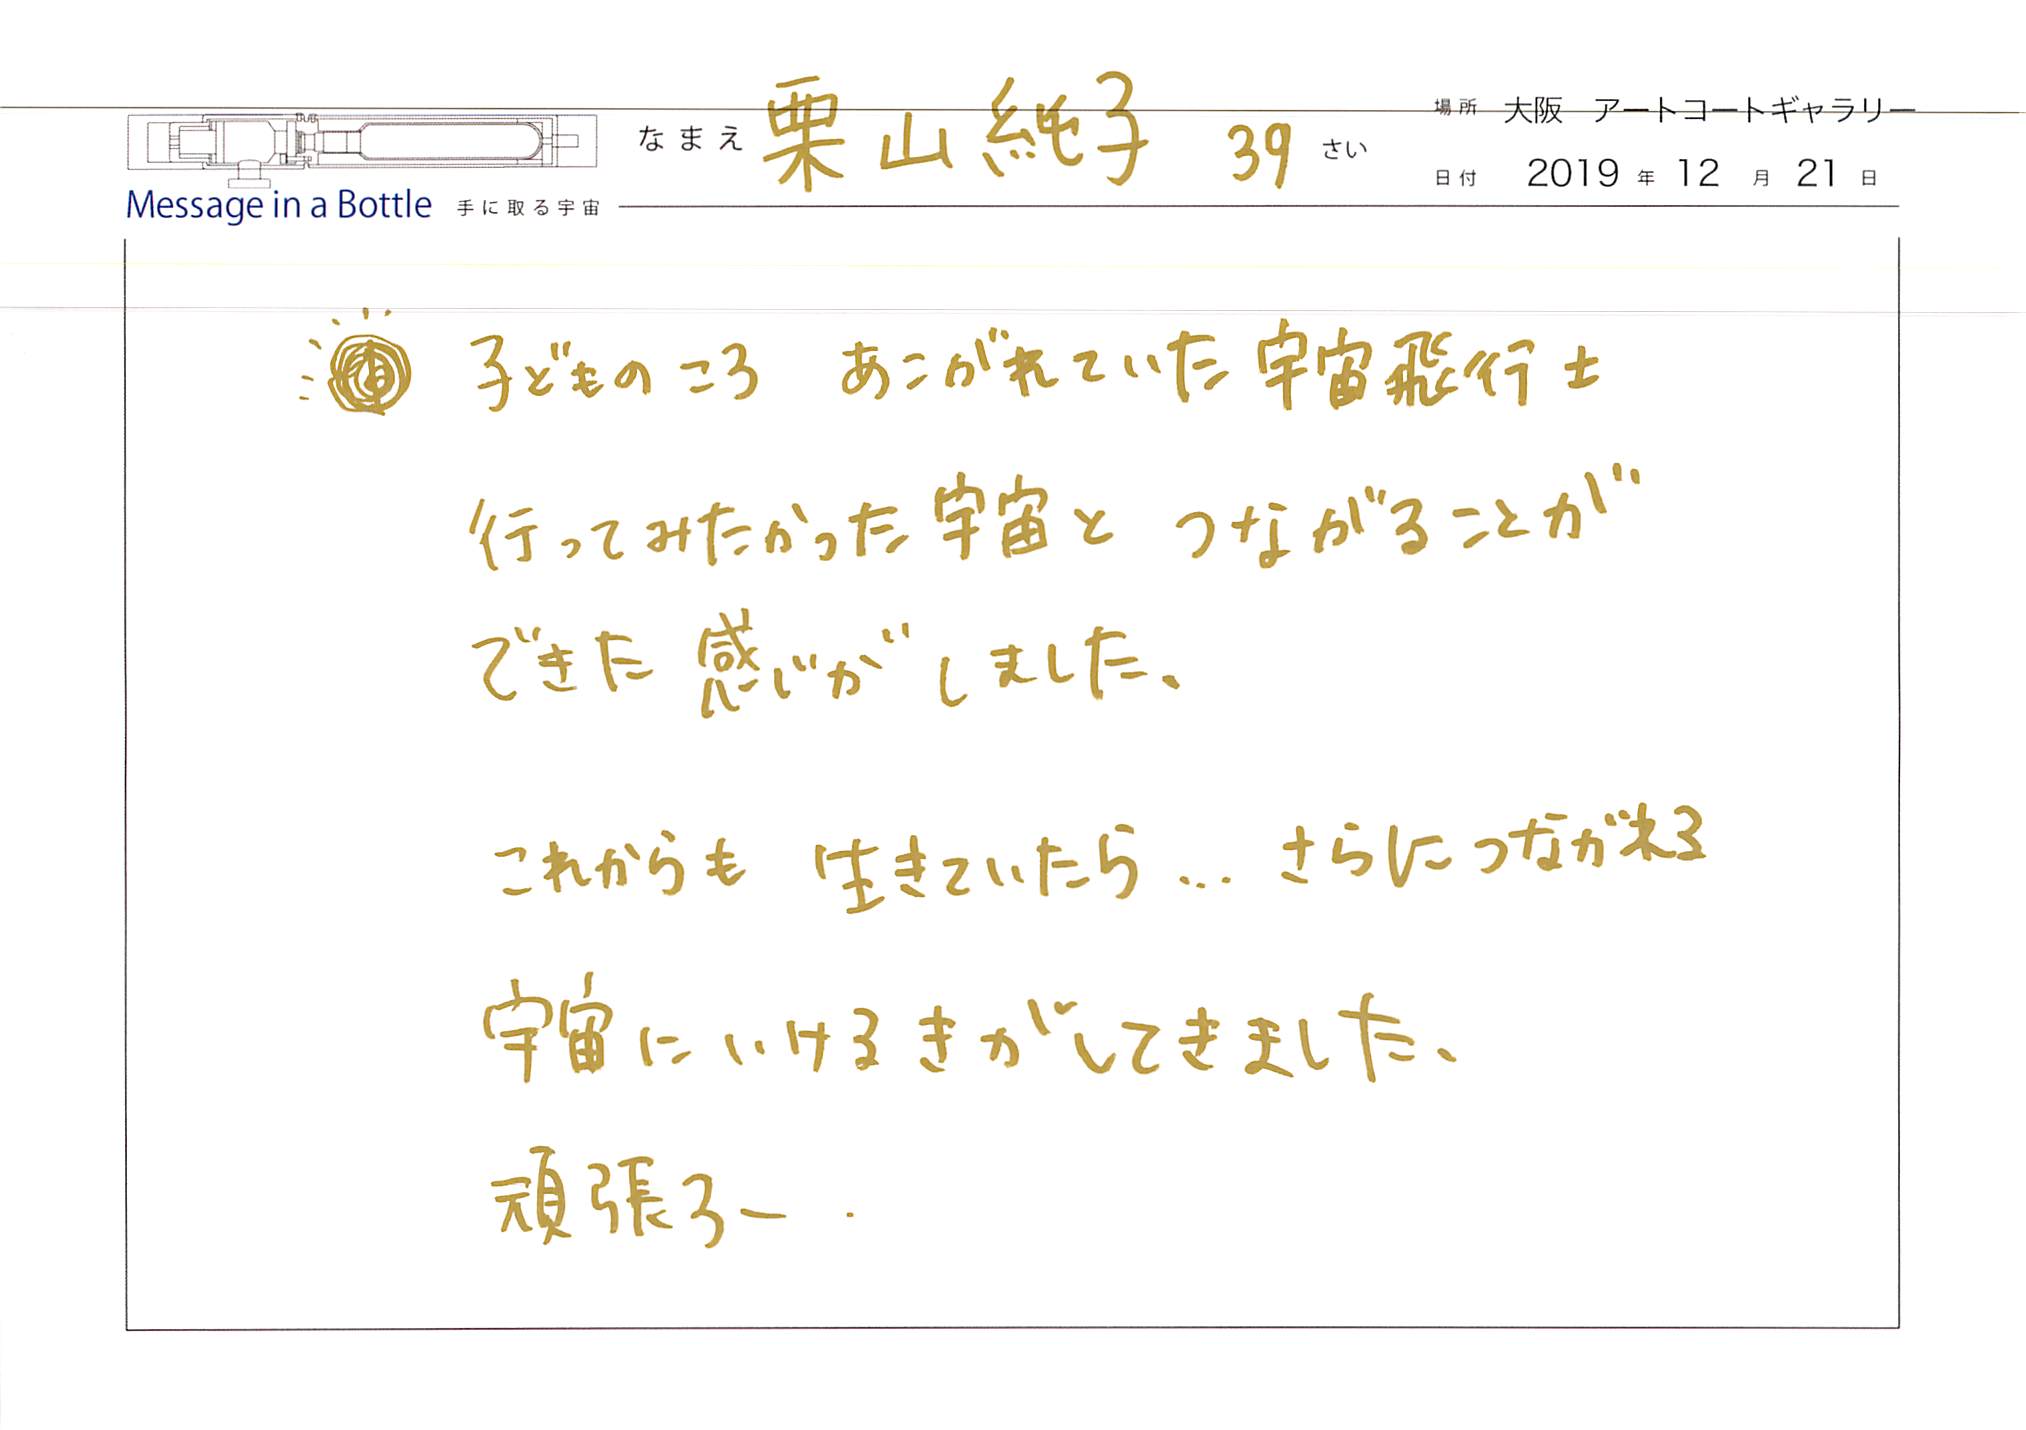 なまえ 栗山純子 39 さい
場所 大阪 アートコートギャラリー
日付 2019 年 12 月 21 日
Message in a Bottle 手に取る宇宙
子どものころ あこがれていた宇宙飛行士
行ってみたかった宇宙と つながることが
できた 感じが しました、
これからも 生きていたら… さらにつながれる
宇宙に いける きがしてきました、
頑張ろー .